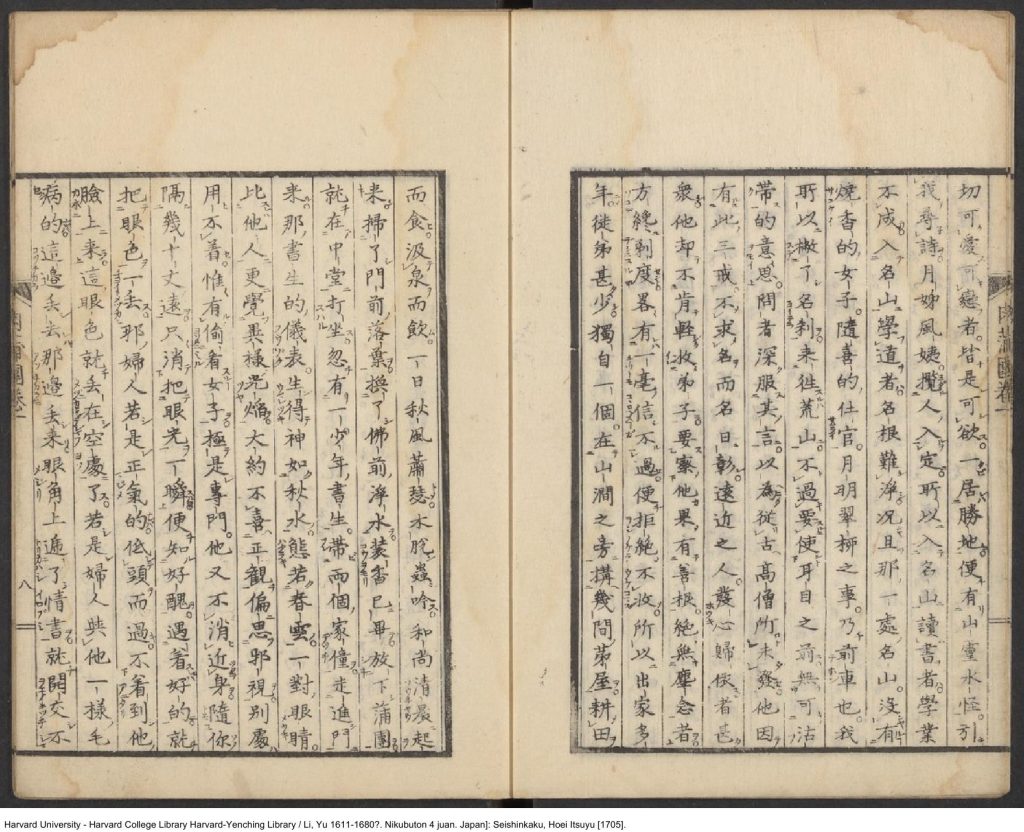 肉蒲團卷一
切可愛可戀者。皆是可欲。一居勝地。便有山靈水怪。引
我尋詩。月姊風姨。攪人入定。所以入名山讀書者。學業
不成。入名山學道者。名根難淨。况且那一處名山。沒有
燒香的女子。隨喜的仕官。月明翠柳之事。乃前車也。我
所以撇了名刹。来徃荒山。不過要使耳目之前。無可沾
帯的意思。問者深服其言。以為従古高僧所未發。他因
有此三戒。不求名而名日彰。遠近之人。發心歸依者甚
衆。他却不肯軽收弟子。要察他果有善根。絶無塵念者。
方纔剃度。畧有一毫信不過。便拒絶不收。所以出家多
年。徒弟甚少。獨自一個。在山澗之旁。搆幾間茅屋。耕田
而食。汲泉而飲。一日秋風蕭瑟。木脱蟲吟。和尚清晨起
来。掃了門前落葉。換了佛前淨水。装香已畢。放下蒲團。
就在中堂打坐。忽有一少年書生。帯両個家僮走進門
来。那書生的儀表。生得神如秋水。態若春雲。一對眼睛。
比他人更覺異樣光焰。大約不喜正観。偏思邪視。别處
用不着。惟有偷看女子。極是専門。他又不消近身。隨你
隔幾十丈遠。只消把眼光一瞬。便知好醜。遇着好的。就
把眼色一丢。那婦人若是正氣的。低頭而過。不看到他
臉上来。這眼色就丢在空處了。若是婦人與他一樣毛
病的。這邊丢去。那邊丢来。眼角上逓了情書。就開交不
八
Harvard University - Harvard College Library Harvard-Yenching Library / Li, Yu 1611-1680?. Nikubuton 4 juan. Japan]: Seishinkaku, Hoei Itsuyu [1705].